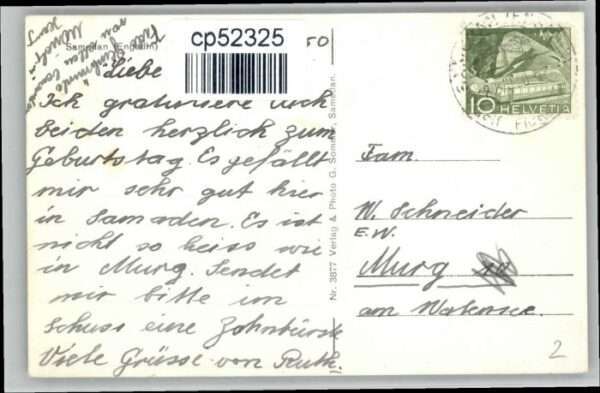 cp52325
FO
Samedan (Engadin)
Liebe
Ich gratuliere euch
beiden herzlich zum
Geburtstag. Es gefällt
mir sehr gut hier
in Samaden. Es ist
nicht so heiss wie
in Murg. Sendet
mir bitte im
Schuss eine Zahnbürste
Viele Grüsse von Ruth.
Nr. 3877 Verlag & Photo G. Sommer, Samedan.
10 HELVETIA
Fam.
W. Schneider
E.W.
Murg
am Walensee.
2